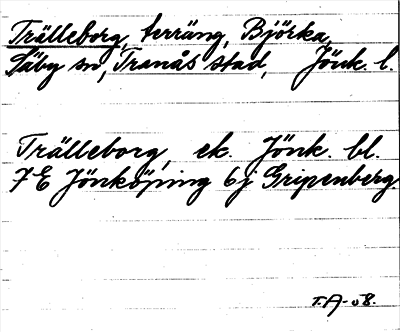 Trälleborg, terräng, Björka,
Säby sn, Tranås stad, Jönk. l.
Trälleborg, ek. Jönk. bl.
7E Jönköping 6j Gripenberg.
T.A-08.